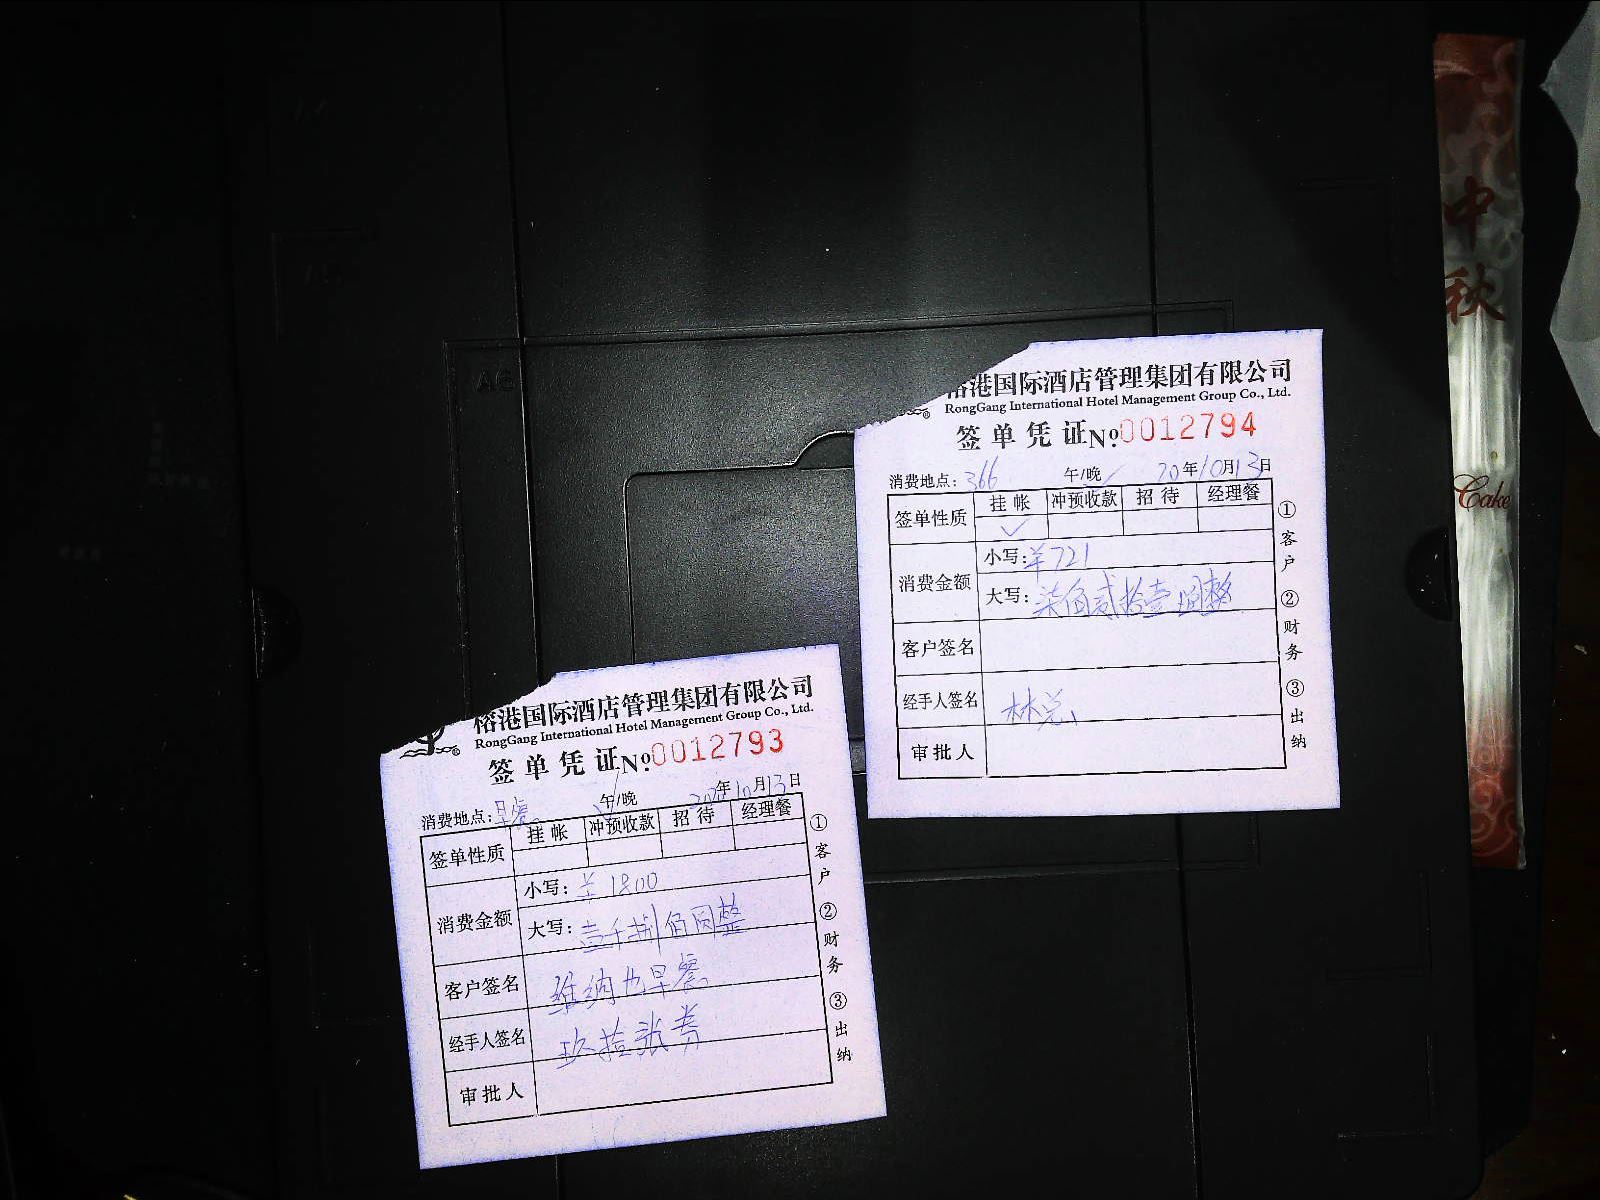 榕港国际酒店管理集团有限公司
RongGang International Hotel Management Group Co., Ltd.
签单凭证No.0012793
消费地点:早餐 午/晚 2020年10月13日
签单性质 挂帐 冲预收款 招待 经理餐
消费金额 小写:¥1800
大写:壹千捌佰圆整
客户签名 维纳也早餐
经手人签名 玖拾张券
审批人
①客户 ②财务 ③出纳
港国际酒店管理集团有限公司
RongGang International Hotel Management Group Co., Ltd.
签单凭证No.0012794
消费地点:366 午/晚✓ 20年10月13日
签单性质 挂帐 冲预收款 招待 经理餐
✓
消费金额 小写:¥721
大写:柒佰贰拾壹圆整
客户签名
经手人签名 林总
审批人
①客户 ②财务 ③出纳
中秋
Cake
A6